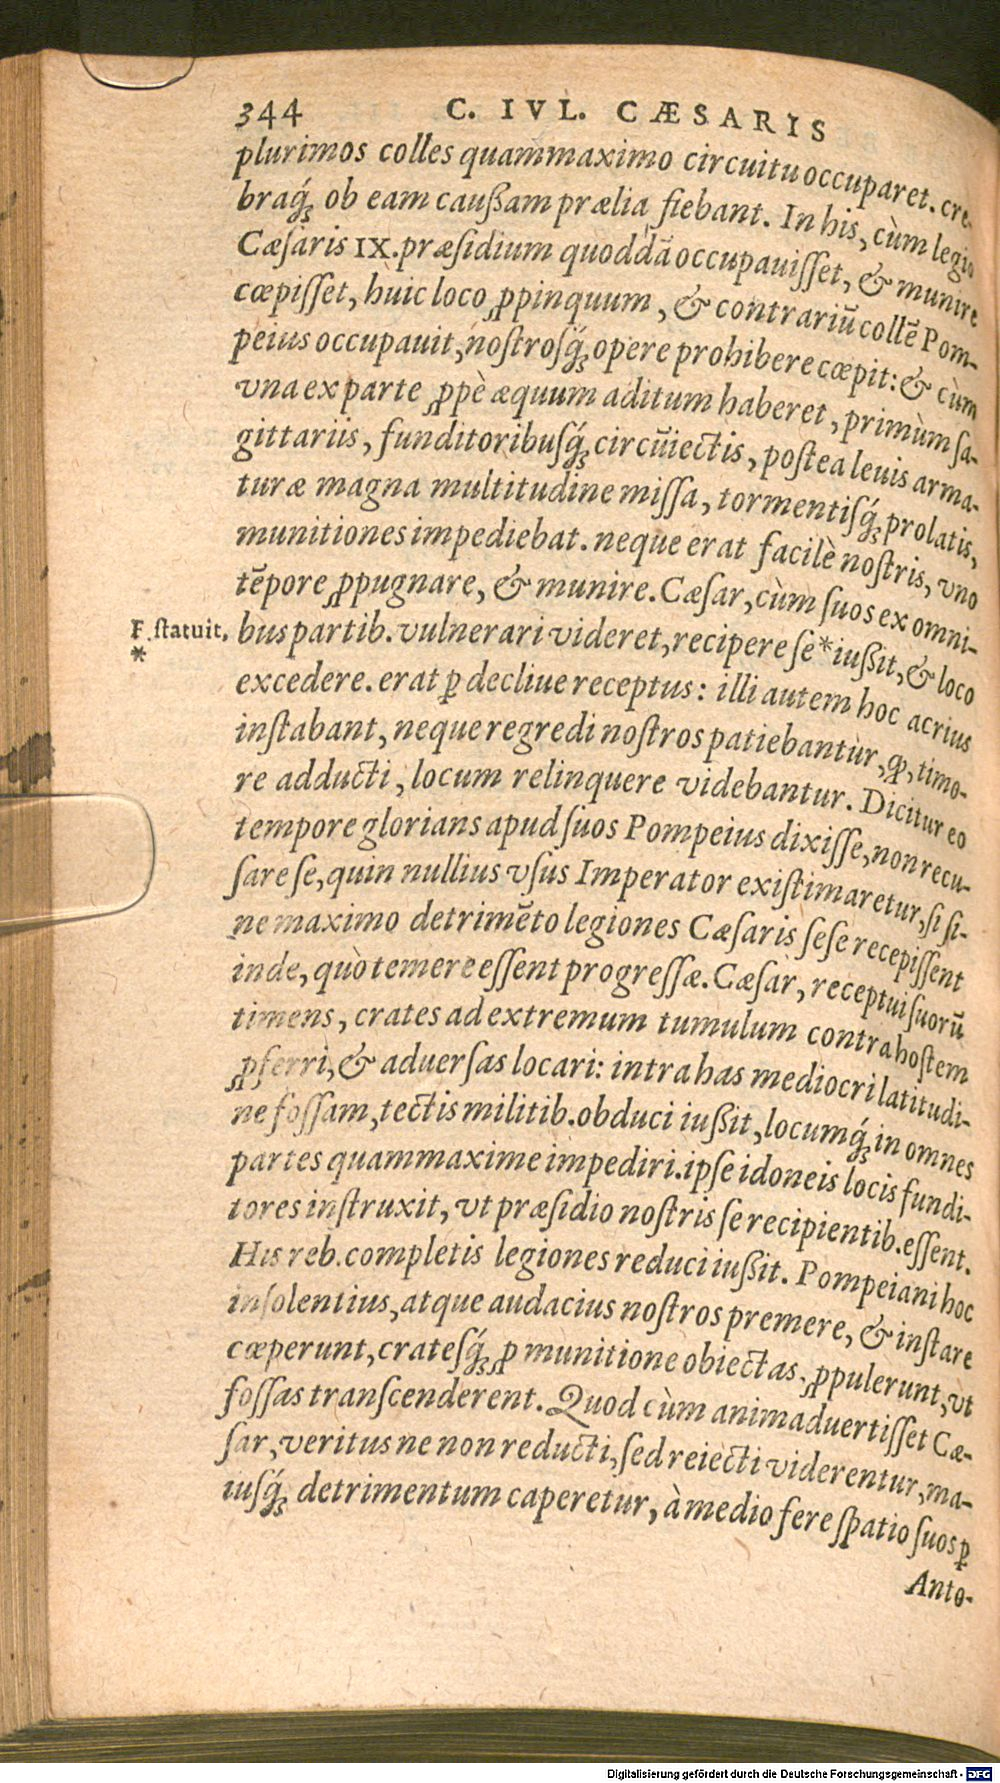 344 C. IVL. CÆSARIS
plurimos colles quammaximo circuitu occuparet. cre-
braq́ꝫ ob eam caußam prælia fiebant. In his, cùm legio
Cæſaris IX. præſidium quoddã occupauiſſet, & munire
cœpiſſet, huic loco ꝓpinquum, & contrariũ collẽ Pom-
peius occupauit, noſtroſq́ꝫ opere prohibere cœpit: & cùm
vna ex parte ꝓpè æquum aditum haberet, primùm ſa-
gittariis, funditoribuſq́ꝫ circũiectis, poſtea leuis arma-
turæ magna multitudine miſſa, tormentiſq́ꝫ prolatis,
munitiones impediebat. neque erat facilè noſtris, vno
tẽpore ꝓpugnare, & munire. Cæſar, cùm ſuos ex omni-
F. ſtatuit. bus partib. vulnerari videret, recipere ſe * iußit, & loco
*
excedere. erat ꝑ decliue receptus: illi autem hoc acrius
inſtabant, neque regredi noſtros patiebantur, ꝙ, timo-
re adducti, locum relinquere videbantur. Dicitur eo
tempore glorians apud ſuos Pompeius dixiſſe, non recu-
ſare ſe, quin nullius vſus Imperator exiſtimaretur, ſi ſi-
ne maximo detrimẽto legiones Cæſaris ſeſe recepiſſent
inde, quò temere eſſent progreſſæ. Cæſar, receptui ſuorũ
timens, crates ad extremum tumulum contra hoſtem
ꝓferri, & aduerſas locari: intra has mediocri latitudi-
ne foſſam, tectis militib. obduci iußit, locumq́ꝫ in omnes
partes quammaxime impediri. ipſe idoneis locis fundi-
tores inſtruxit, vt præſidio noſtris ſe recipientib. eſſent.
His reb. completis legiones reduci iußit. Pompeiani hoc
inſolentius, atque audacius noſtros premere, & inſtare
cœperunt, crateſq́ꝫ ꝓ munitione obiectas, ꝓpulerunt, vt
foſſas tranſcenderent. Quod cùm animaduertiſſet Cæ-
ſar, veritus ne non reducti, ſed reiecti viderentur, ma-
iuſq́ꝫ detrimentum caperetur, à medio fere ſpatio ſuos ꝑ
Anto-
Digitalisierung gefördert durch die Deutsche Forschungsgemeinschaft - DFG